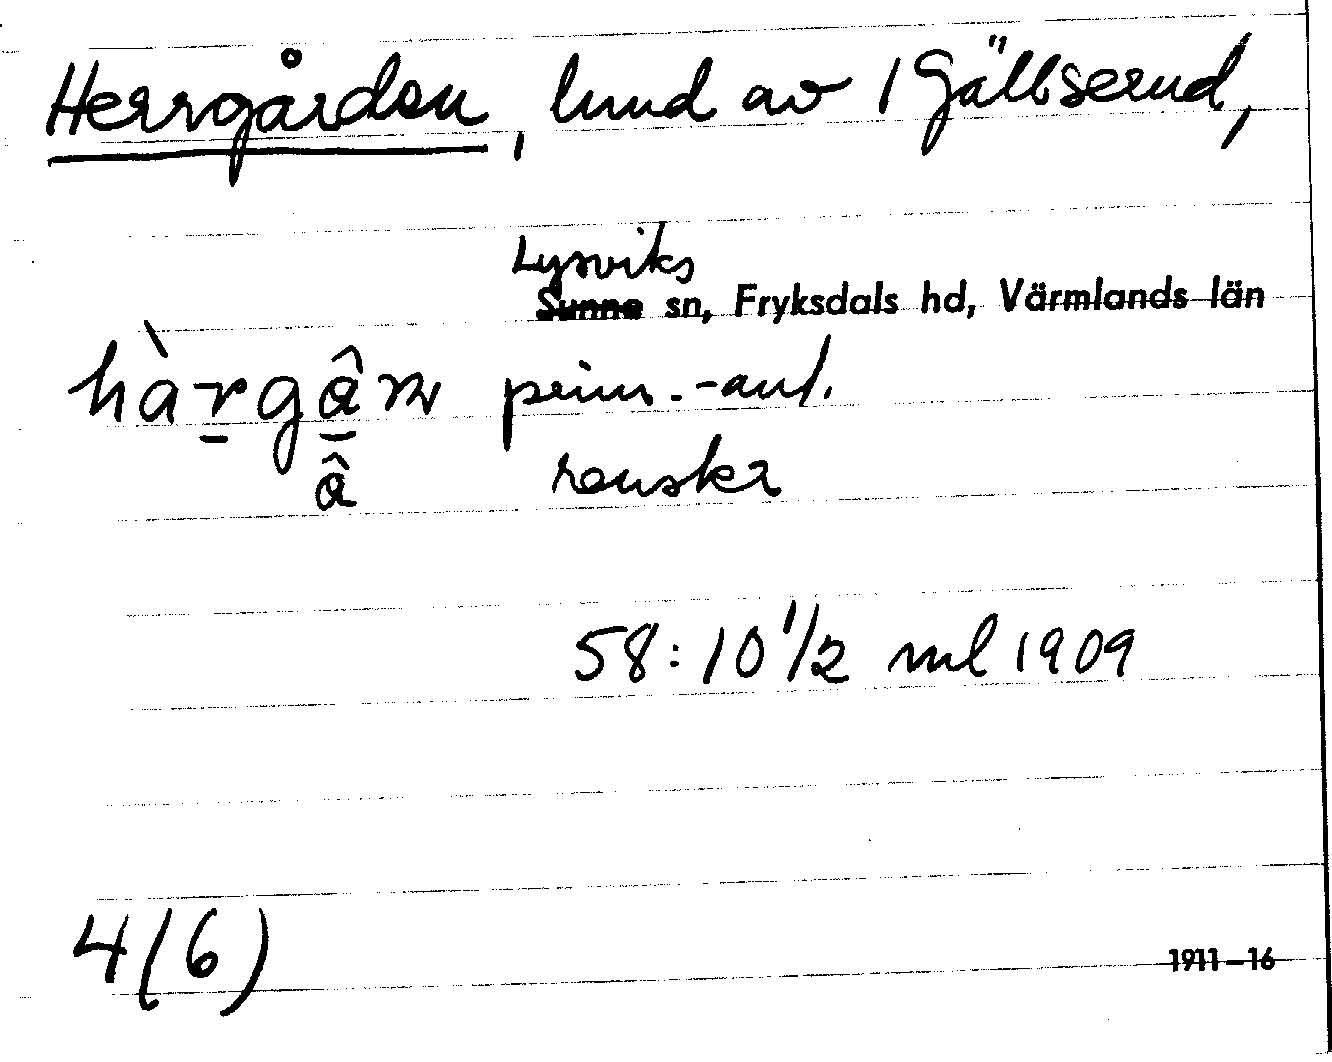 Herrgården, lund av 1 Gällserud,
Lysviks
Sunne sn, Fryksdals hd, Värmlands län
hàrgân prim. -ant.
â renskr
58:10 1/2 ml 1909
4(6)
1911–16